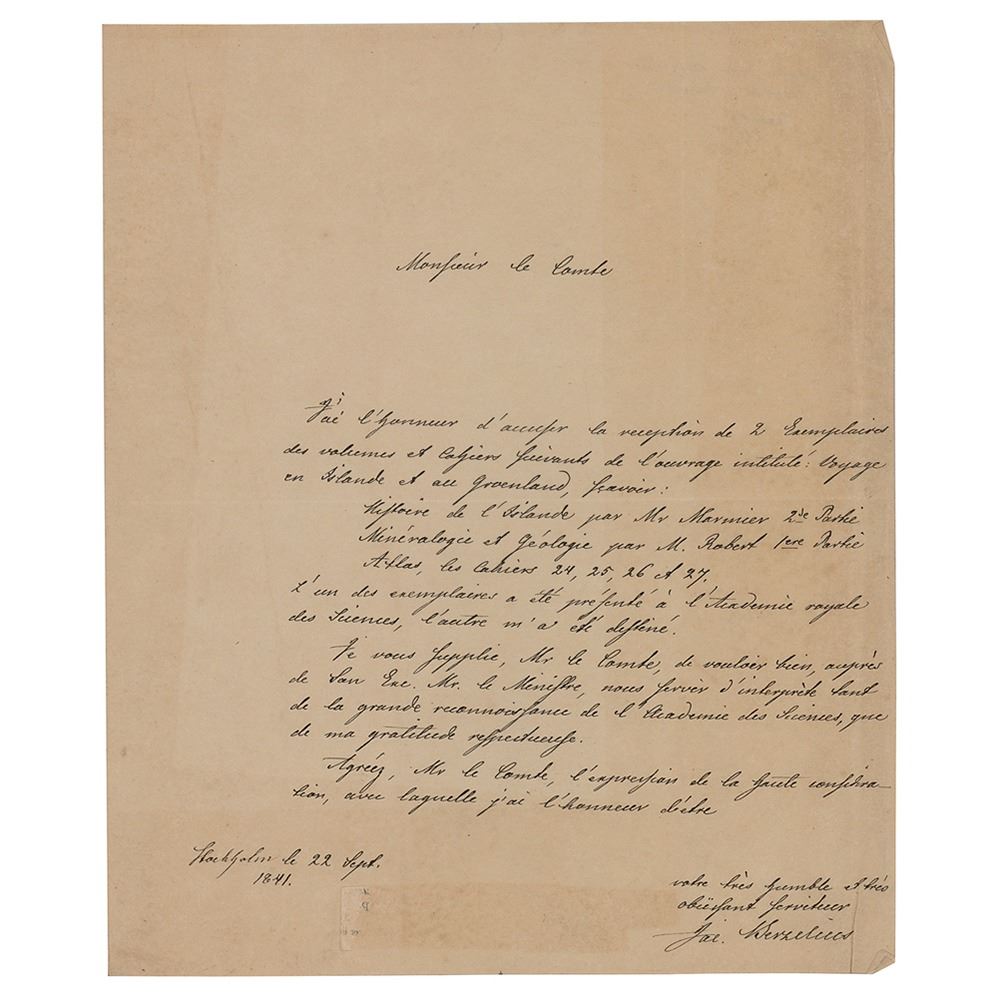 Monsieur le Comte
J'ai l'honneur d'accuser la reception de 2 Exemplaires
des volumes et Cahiers suivants de l'ouvrage intitulé: Voyage
en Islande et au Groenland, savoir:
Histoire de l'Islande par Mr Marmier 2de Partie
Minéralogie et Géologie par M. Robert 1ere Partie
Atlas, les Cahiers 24, 25, 26 et 27.
L'un des exemplaires a été présenté à l'Academie royale
des Sciences, l'autre m'a été destiné.
Je vous supplie, Mr le Comte, de vouloir bien, auprès
de Son Exc. Mr. le Ministre, nous servir d'interprète tant
de la grande reconnoissance de l'Academie des Sciences, que
de ma gratitude respectueuse.
Agréez, Mr le Comte, l'expression de la haute considéra-
tion, avec laquelle j'ai l'honneur d'être
Stockholm le 22 Sept.
1841.
votre très humble et très
obéissant serviteur
Jac. Berzelius